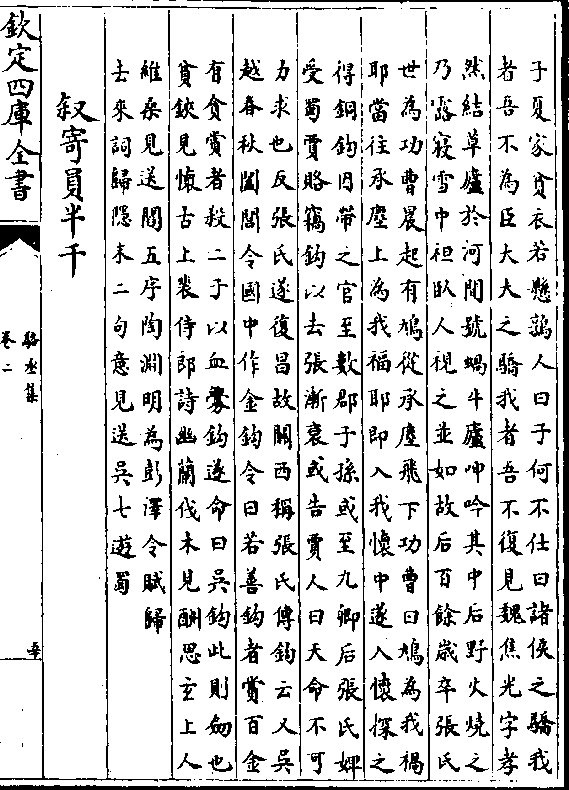 子夏家貧衣若懸鶉人曰子何不仕曰諸侯之驕我
者吾不為臣大夫之驕我者吾不復見魏焦光字孝
然結草廬於河間號蝸牛廬呻吟其中后野火燒之
乃露寢雪中袒臥人視之並如故后百餘歲卒張氏
世為功曹晨起有鳩從承塵飛下功曹曰鳩為我禍
耶當往承塵上為我福耶即入我懷中遂入懷探之
得銅鈎因帶之官至數郡子孫或至九卿后張氏婢
受蜀賈賂竊鈎以去張漸衰或告賈人曰天命不可
力求也反張氏遂復昌故關西稱張氏傳鈎云又吳
越春秋闔閭令國中作金鈎令曰若善鈎者賞百金
有貪賞者殺二子以血釁鈎遂命曰吳鈎此則劒也
貧鋏見懷古上裴侍郎詩幽蘭伐木見酬思玄上人
維桑見送閻五序陶淵明為彭澤令賦歸
去來詞歸隱末二句意見送吳七遊蜀
叙寄員半千
欽定四庫全書
駱丞集
卷二